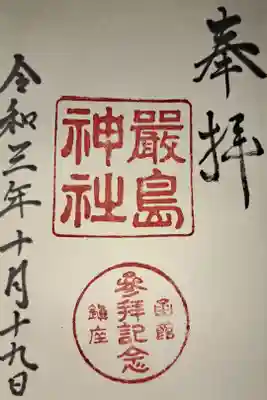 奉拝
嚴島
神社
函館
參拜記念
鎮座
令和三年十月十九日